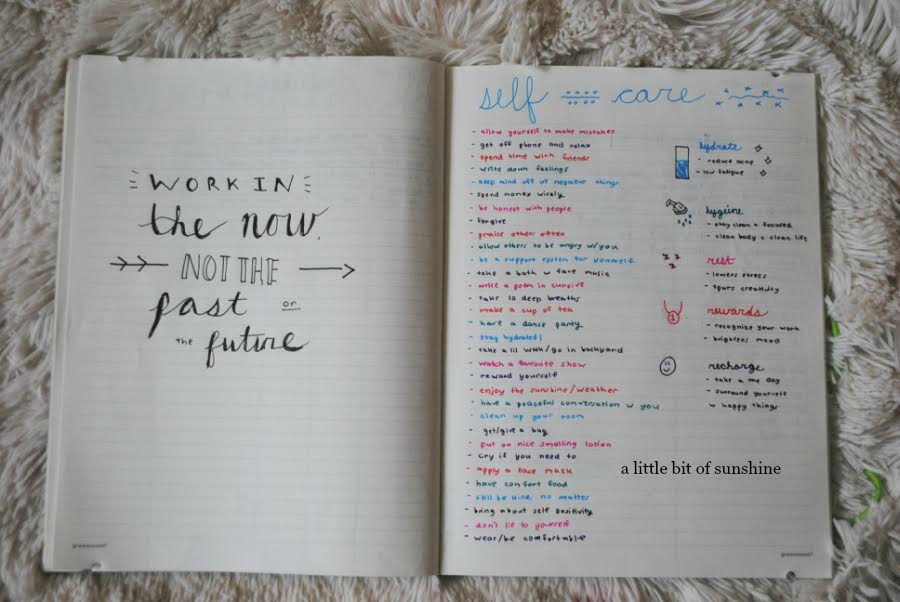 WORK IN
the now,
NOT THE
past or
the future
self care
- allow yourself to make mistakes
- get off phone and relax
- spend time with friends
- write down feelings
- keep mind off of negative things
- spend money wisely
- be honest with people
- forgive
- praise others often
- allow others to be angry w/you
- be a support system for yourself
- take a bath w fave music
- write a poem in cursive
- take 10 deep breaths
- make a cup of tea
- have a dance party
- stay hydrated!
- take a lil walk/go in backyard
- watch a favorite show
- reward yourself
- enjoy the sunshine/weather
- have a peaceful conversation w you
- clean up your room
- get/give a hug
- put on nice smelling lotion
- cry if you need to
- apply a face mask
- have comfort food
- still be kind, no matter
- bring about self positivity
- don't lie to yourself
- wear/be comfortable
hydrate
- reduce acne
- low fatigue
hygeine
- stay clean + focused
- clean body = clean life
rest
- lowers stress
- spurs creativity
1
rewards
- recognize your work
- brightens mood
recharge
- take a me day
- surround yourself
w happy things
a little bit of sunshine
greenroom
greenroom